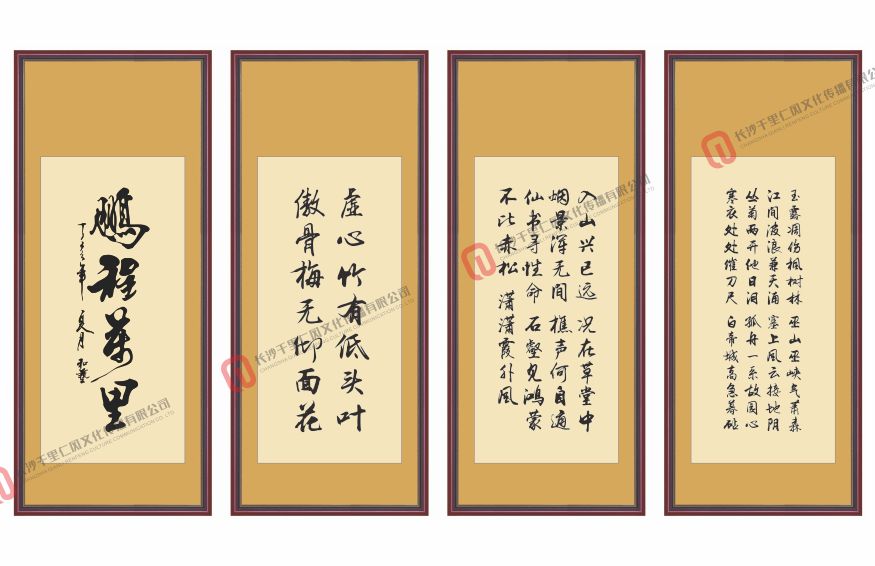 鹏程萬里
丁亥年 夏月
虚心竹有低头叶
傲骨梅无仰面花
入山兴已远 况在草堂中
烟景浑无间 樵声何自通
仙书寻性命 石壑见鸿蒙
不比赤松 潇潇霞外风
玉露凋伤枫树林 巫山巫峡气萧森
江间波浪兼天涌 塞上风云接地阴
丛菊两开他日泪 孤舟一系故园心
寒衣处处催刀尺 白帝城高急暮砧
长沙千里仁风文化传播有限公司
CHANGSHA QIANLI RENFENG CULTURE COMMUNICATION CO LTD.
长沙千里仁风文化传播有限公司
CHANGSHA QIANLI RENFENG CULTURE COMMUNICATION CO LTD.
长沙千里仁风文化传播有限公司
CHANGSHA QIANLI RENFENG CULTURE COMMUNICATION CO LTD.
长沙千里仁风文化传播有限公
CHANGSHA QIANLI RENFENG CULTURE COMMUNICATION